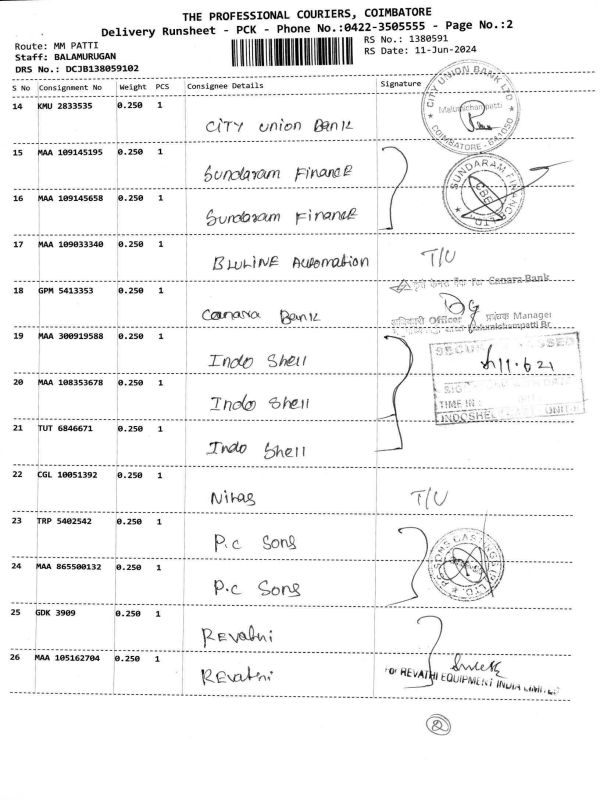 THE PROFESSIONAL COURIERS, COIMBATORE
Delivery Runsheet - PCK - Phone No.:0422-3505555 - Page No.:2
Route: MM PATTI
RS No.: 1380591
Staff: BALAMURUGAN
RS Date: 11-Jun-2024
DRS No.: DCJB138059102
S No Consignment No Weight PCS Consignee Details Signature
14 KMU 2833535 0.250 1 CITY Union Bank
CITY UNION BANK LTD
Malumichampatti
COIMBATORE - 641050
15 MAA 109145195 0.250 1 Sundaram Finance
SUNDARAM FINANCE LTD
CBE
16 MAA 109145658 0.250 1 Sundaram Finance
17 MAA 109033340 0.250 1 BLULINE Automation T/U
18 GPM 5413353 0.250 1 Canara Bank
केनरा बैंक For Canara Bank
Officer प्रबंधक Manager
Malumichampatti Br
19 MAA 300919588 0.250 1 Indo Shell
20 MAA 108353678 0.250 1 Indo Shell
TIME IN:
21 TUT 6846671 0.250 1 Indo Shell
22 CGL 10051392 0.250 1 Nihas T/U
23 TRP 5402542 0.250 1 P.C Sons
24 MAA 865500132 0.250 1 P.C Sons
25 GDK 3909 0.250 1 REvathi
26 MAA 105162704 0.250 1 REvathi
For REVATHI EQUIPMENT INDIA LIMITED
2